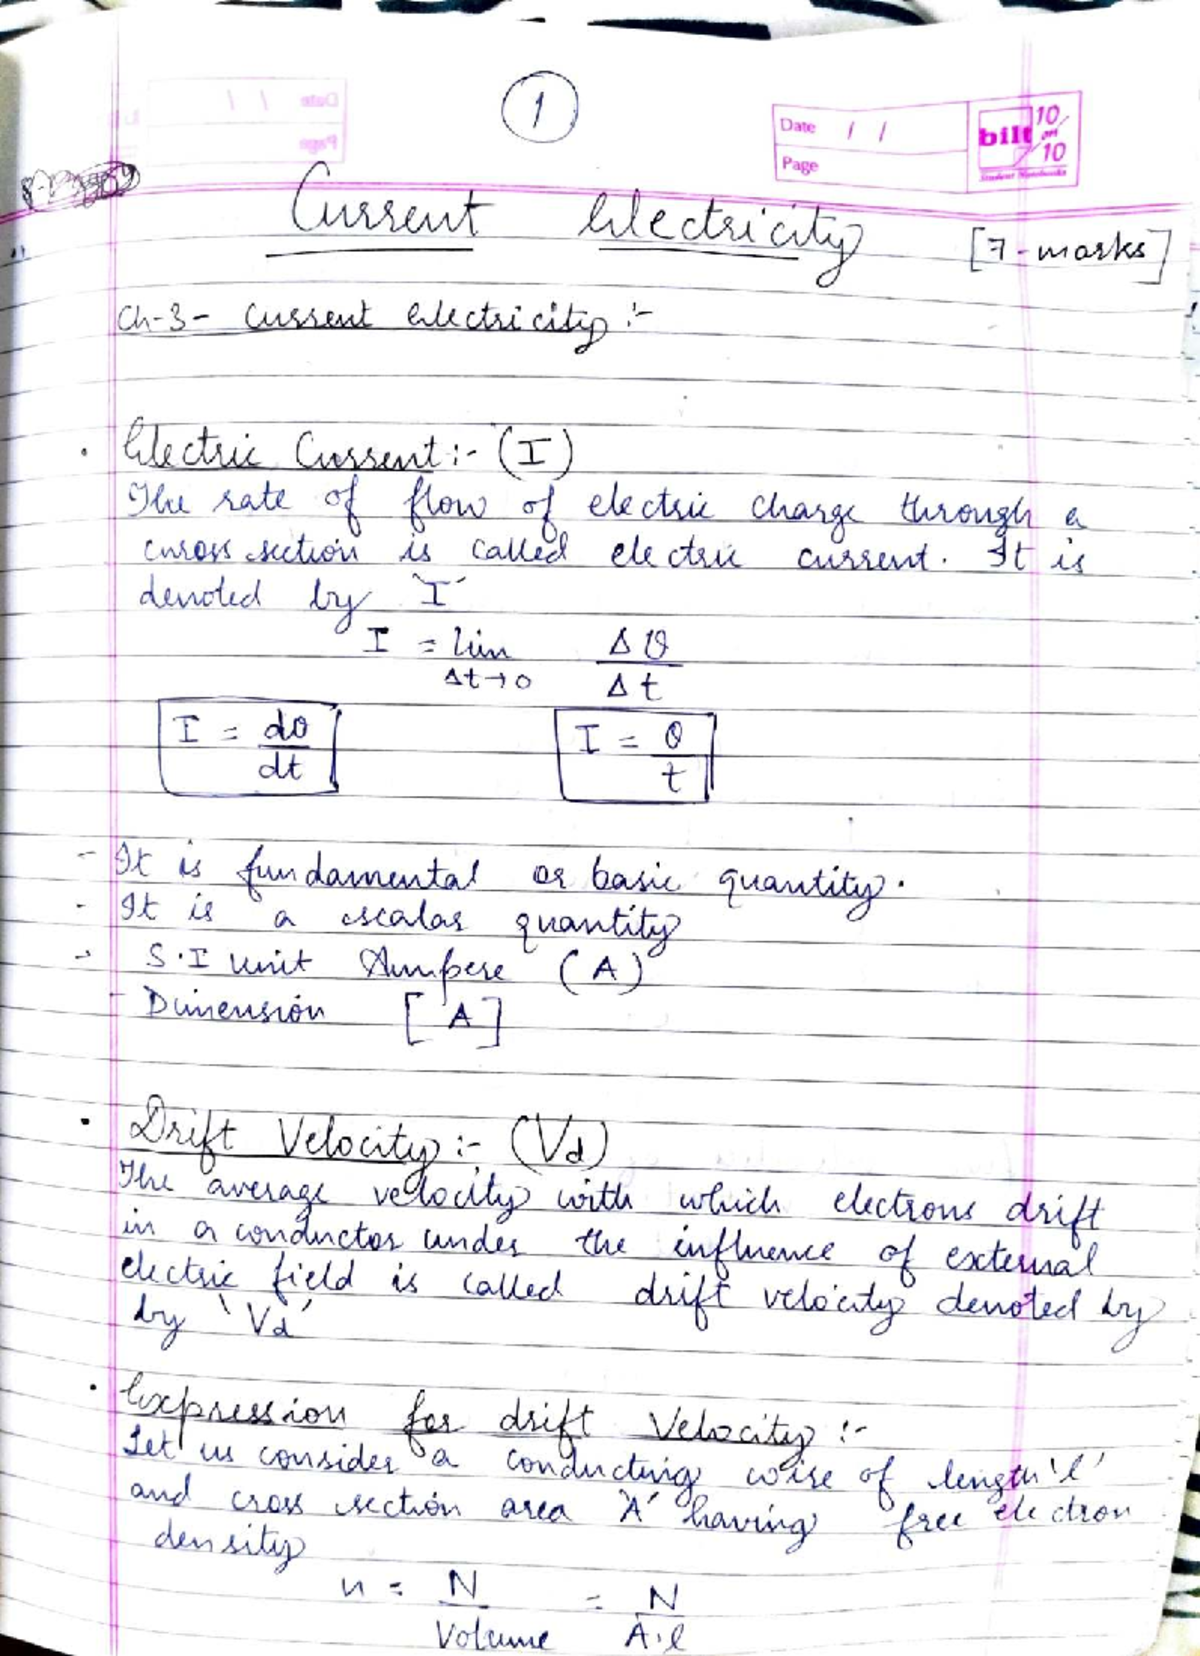 1
Date / /
Page
bilt 10 on 10
Student Notebooks
Current Electricity [7-marks]
Ch-3- Current electricity :-
• Electric Current :- (I)
The rate of flow of electric charge through a
cross section is called electric current. It is
denoted by 'I'
I = lim ΔQ
Δt→0 Δt
I = dQ I = Q
dt t
- It is fundamental or basic quantity.
- It is a scalar quantity
- S.I unit Ampere (A)
- Dimension [A]
• Drift Velocity :- (Vd)
The average velocity with which electrons drift
in a conductor under the influence of external
electric field is called drift velocity denoted by
by 'Vd'
• Expression for drift Velocity :-
Let us consider a conducting wire of length 'l'
and cross section area 'A' having free electron
density
n = N = N
Volume A.l